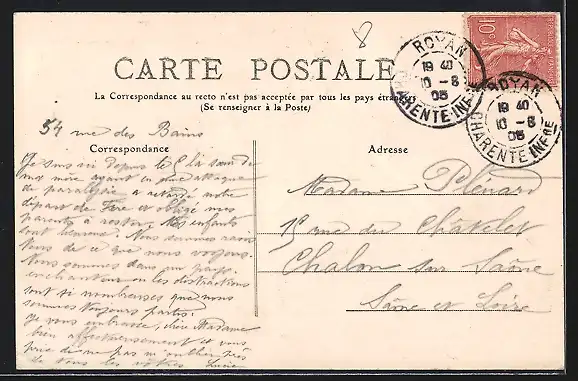 8
CARTE POSTALE
La Correspondance au recto n'est pas acceptée par tous les pays étran
(Se renseigner à la Poste)
ROYAN
19 45
10 -8
05
CHARENTE INFRE
ROYAN
19 45
10 -8
05
CHARENTE INFRE
10
54 rue des Bains
Correspondance
Adresse
Je suis ici depuis le la santé de
ma mère ayant eu une attaque
de paralysie a retardé notre
départ de Fère et obligé mes
parents à rester. Les enfants
sont heureux. Nous sommes ravis
tous de ce que nous voyons.
Nous sommes dans un pays
enchanteur où les distractions
sont si nombreuses que nous
sommes toujours partis.
Je vous embrasse, chère Madame
bien affectueusement et vous
prie de ne pas m'oublier près
de tous les vôtres
Madame Plénard
15 rue du Châtelet
Chalon sur Saône
Saône et Loire